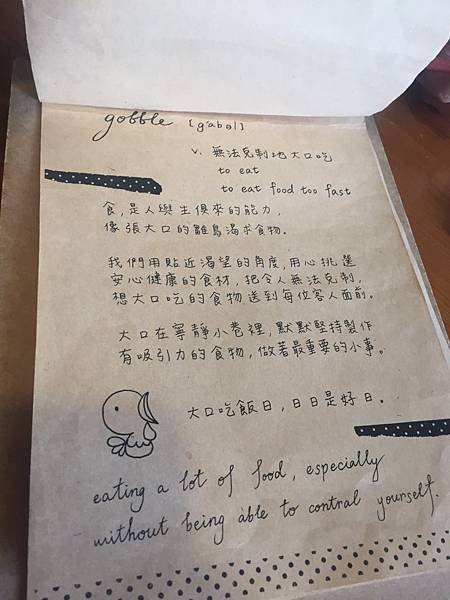 gobble [gˋabəl]
v. 無法克制地大口吃
to eat
to eat food too fast
食,是人與生俱來的能力,
像張大口的雛鳥渴求食物。
我們用貼近渴望的角度,用心挑選
安心健康的食材,把令人無法克制,
想大口吃的食物送到每位客人面前。
大口在寧靜小巷裡,默默堅持製作
有吸引力的食物,做著最重要的小事。
大口吃飯日,日日是好日。
eating a lot of food, especially
without being able to contral yourself.